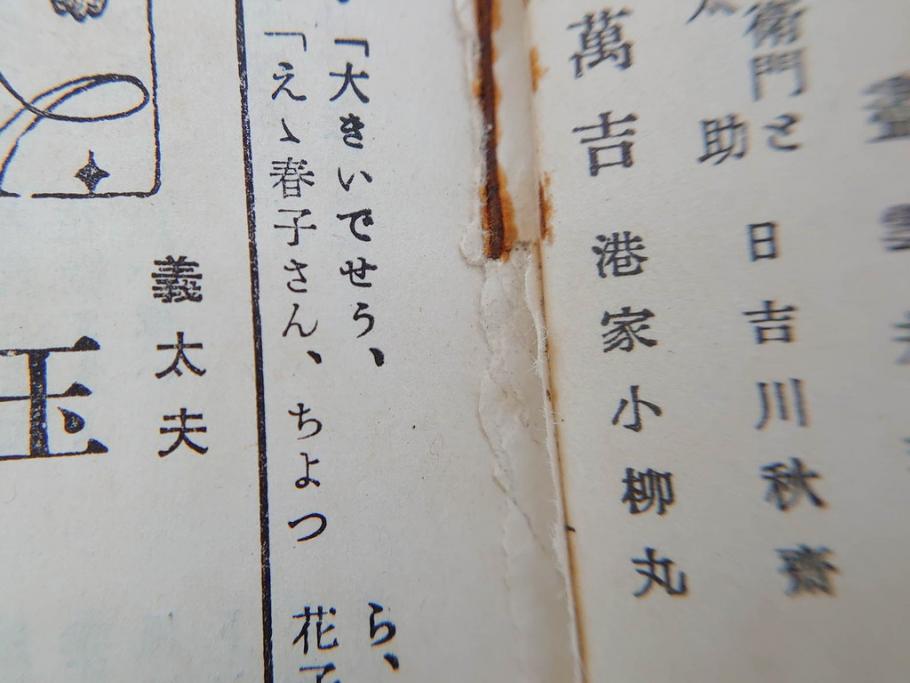 衛門と 日吉川秋齋
助
萬吉 港家小柳丸
「大きいでせう、
ら、
「えゝ春子さん、ちよつ
花子
義太夫
玉